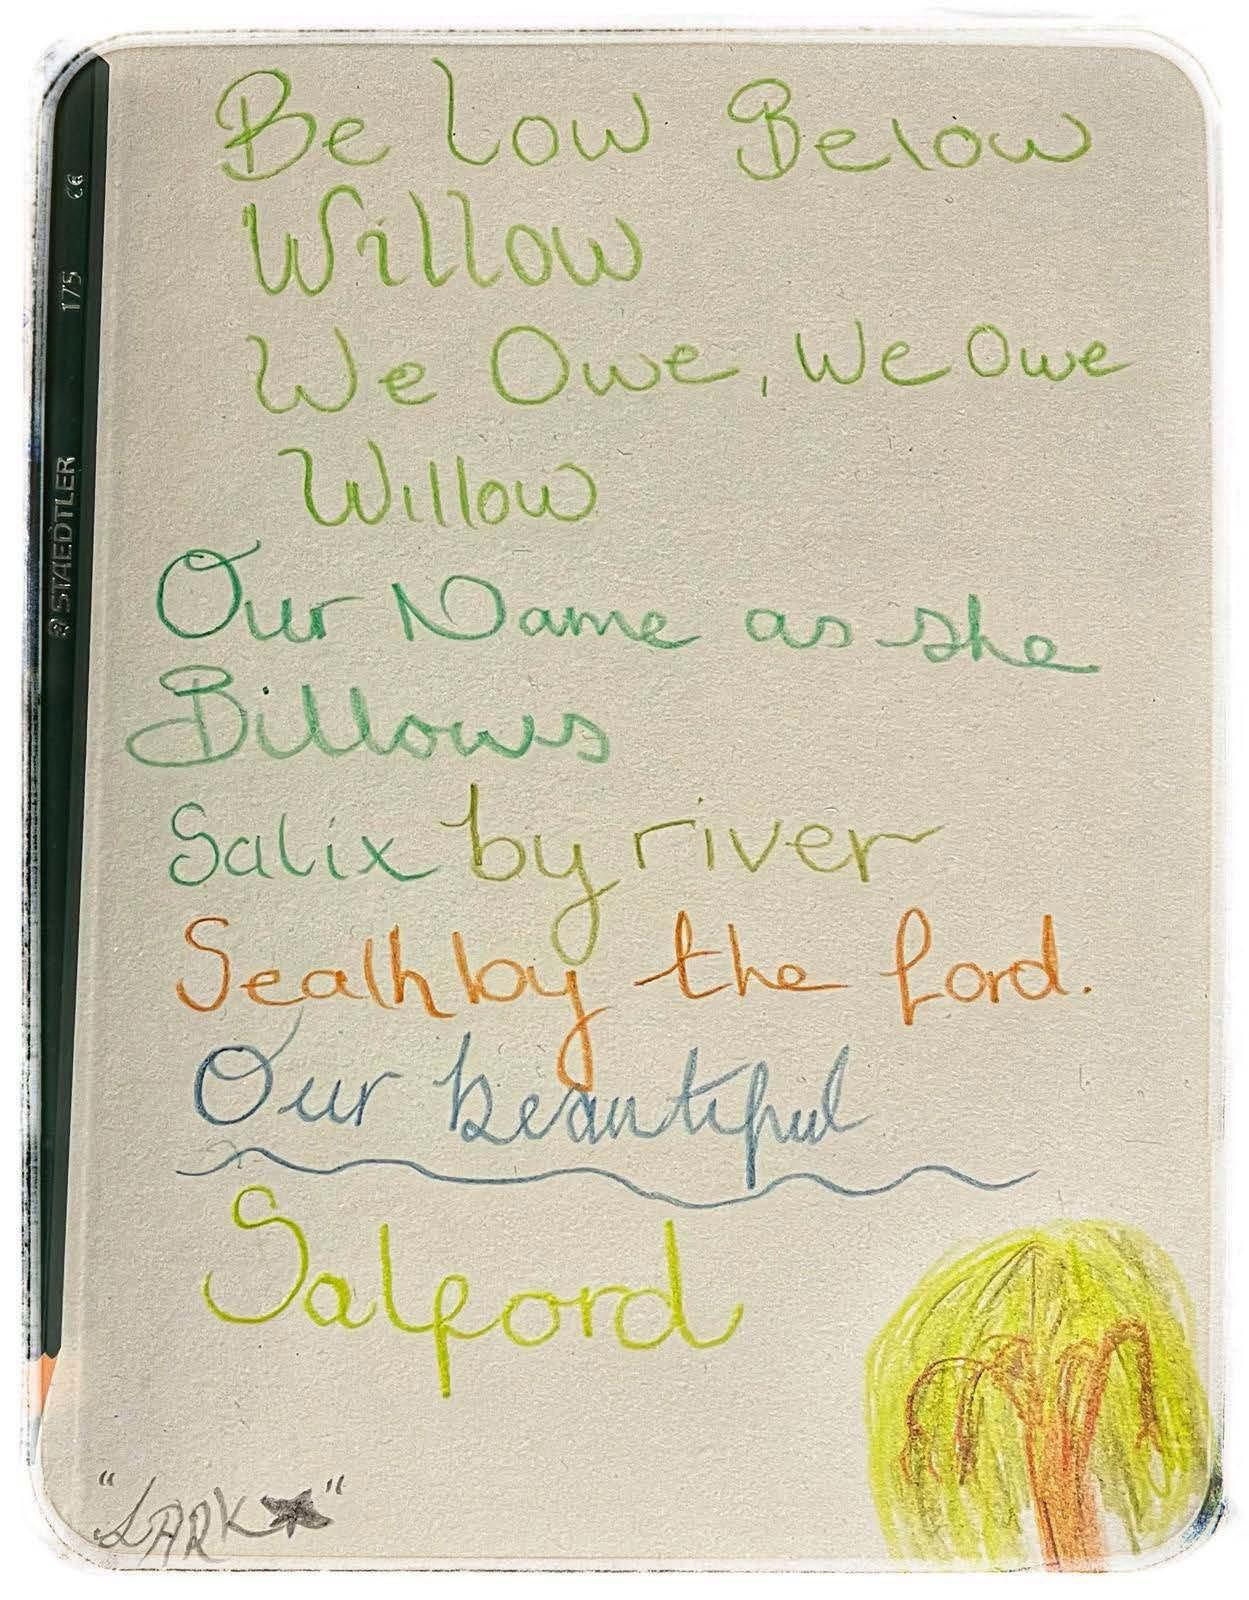 Be Low Below
Willow
We Owe, We Owe
Willow
Our Name as she
Billows
Salix by river
Sealh by the ford.
Our beautiful
Salford
"LARK★"
STAEDTLER 175